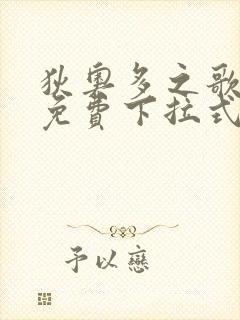 狄奥多之歌
免費下拉式
予以戀